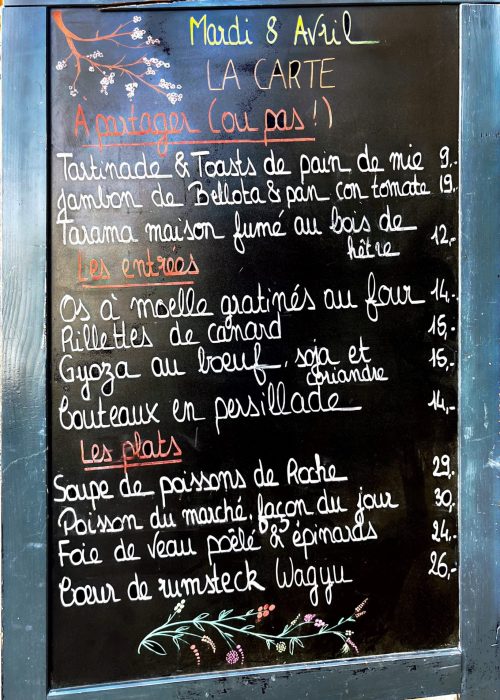 Mardi 8 Avril
LA CARTE
A partager (ou pas!)
Tartinade & Toasts de pain de mie 9,-
Jambon de Bellota & pan con tomate 19,-
Tarama maison fumé au bois de
hêtre 12,-
Les entrées
Os à moelle gratinés au four 14,-
Rillettes de canard 15,-
Gyoza au bœuf, soja et
coriandre 15,-
Couteaux en persillade 14,-
Les plats
Soupe de poissons de Roche 29,-
Poisson du marché, façon du jour 30,-
Foie de veau poêlé & épinards 24,-
Cœur de rumsteck Wagyu 26,-